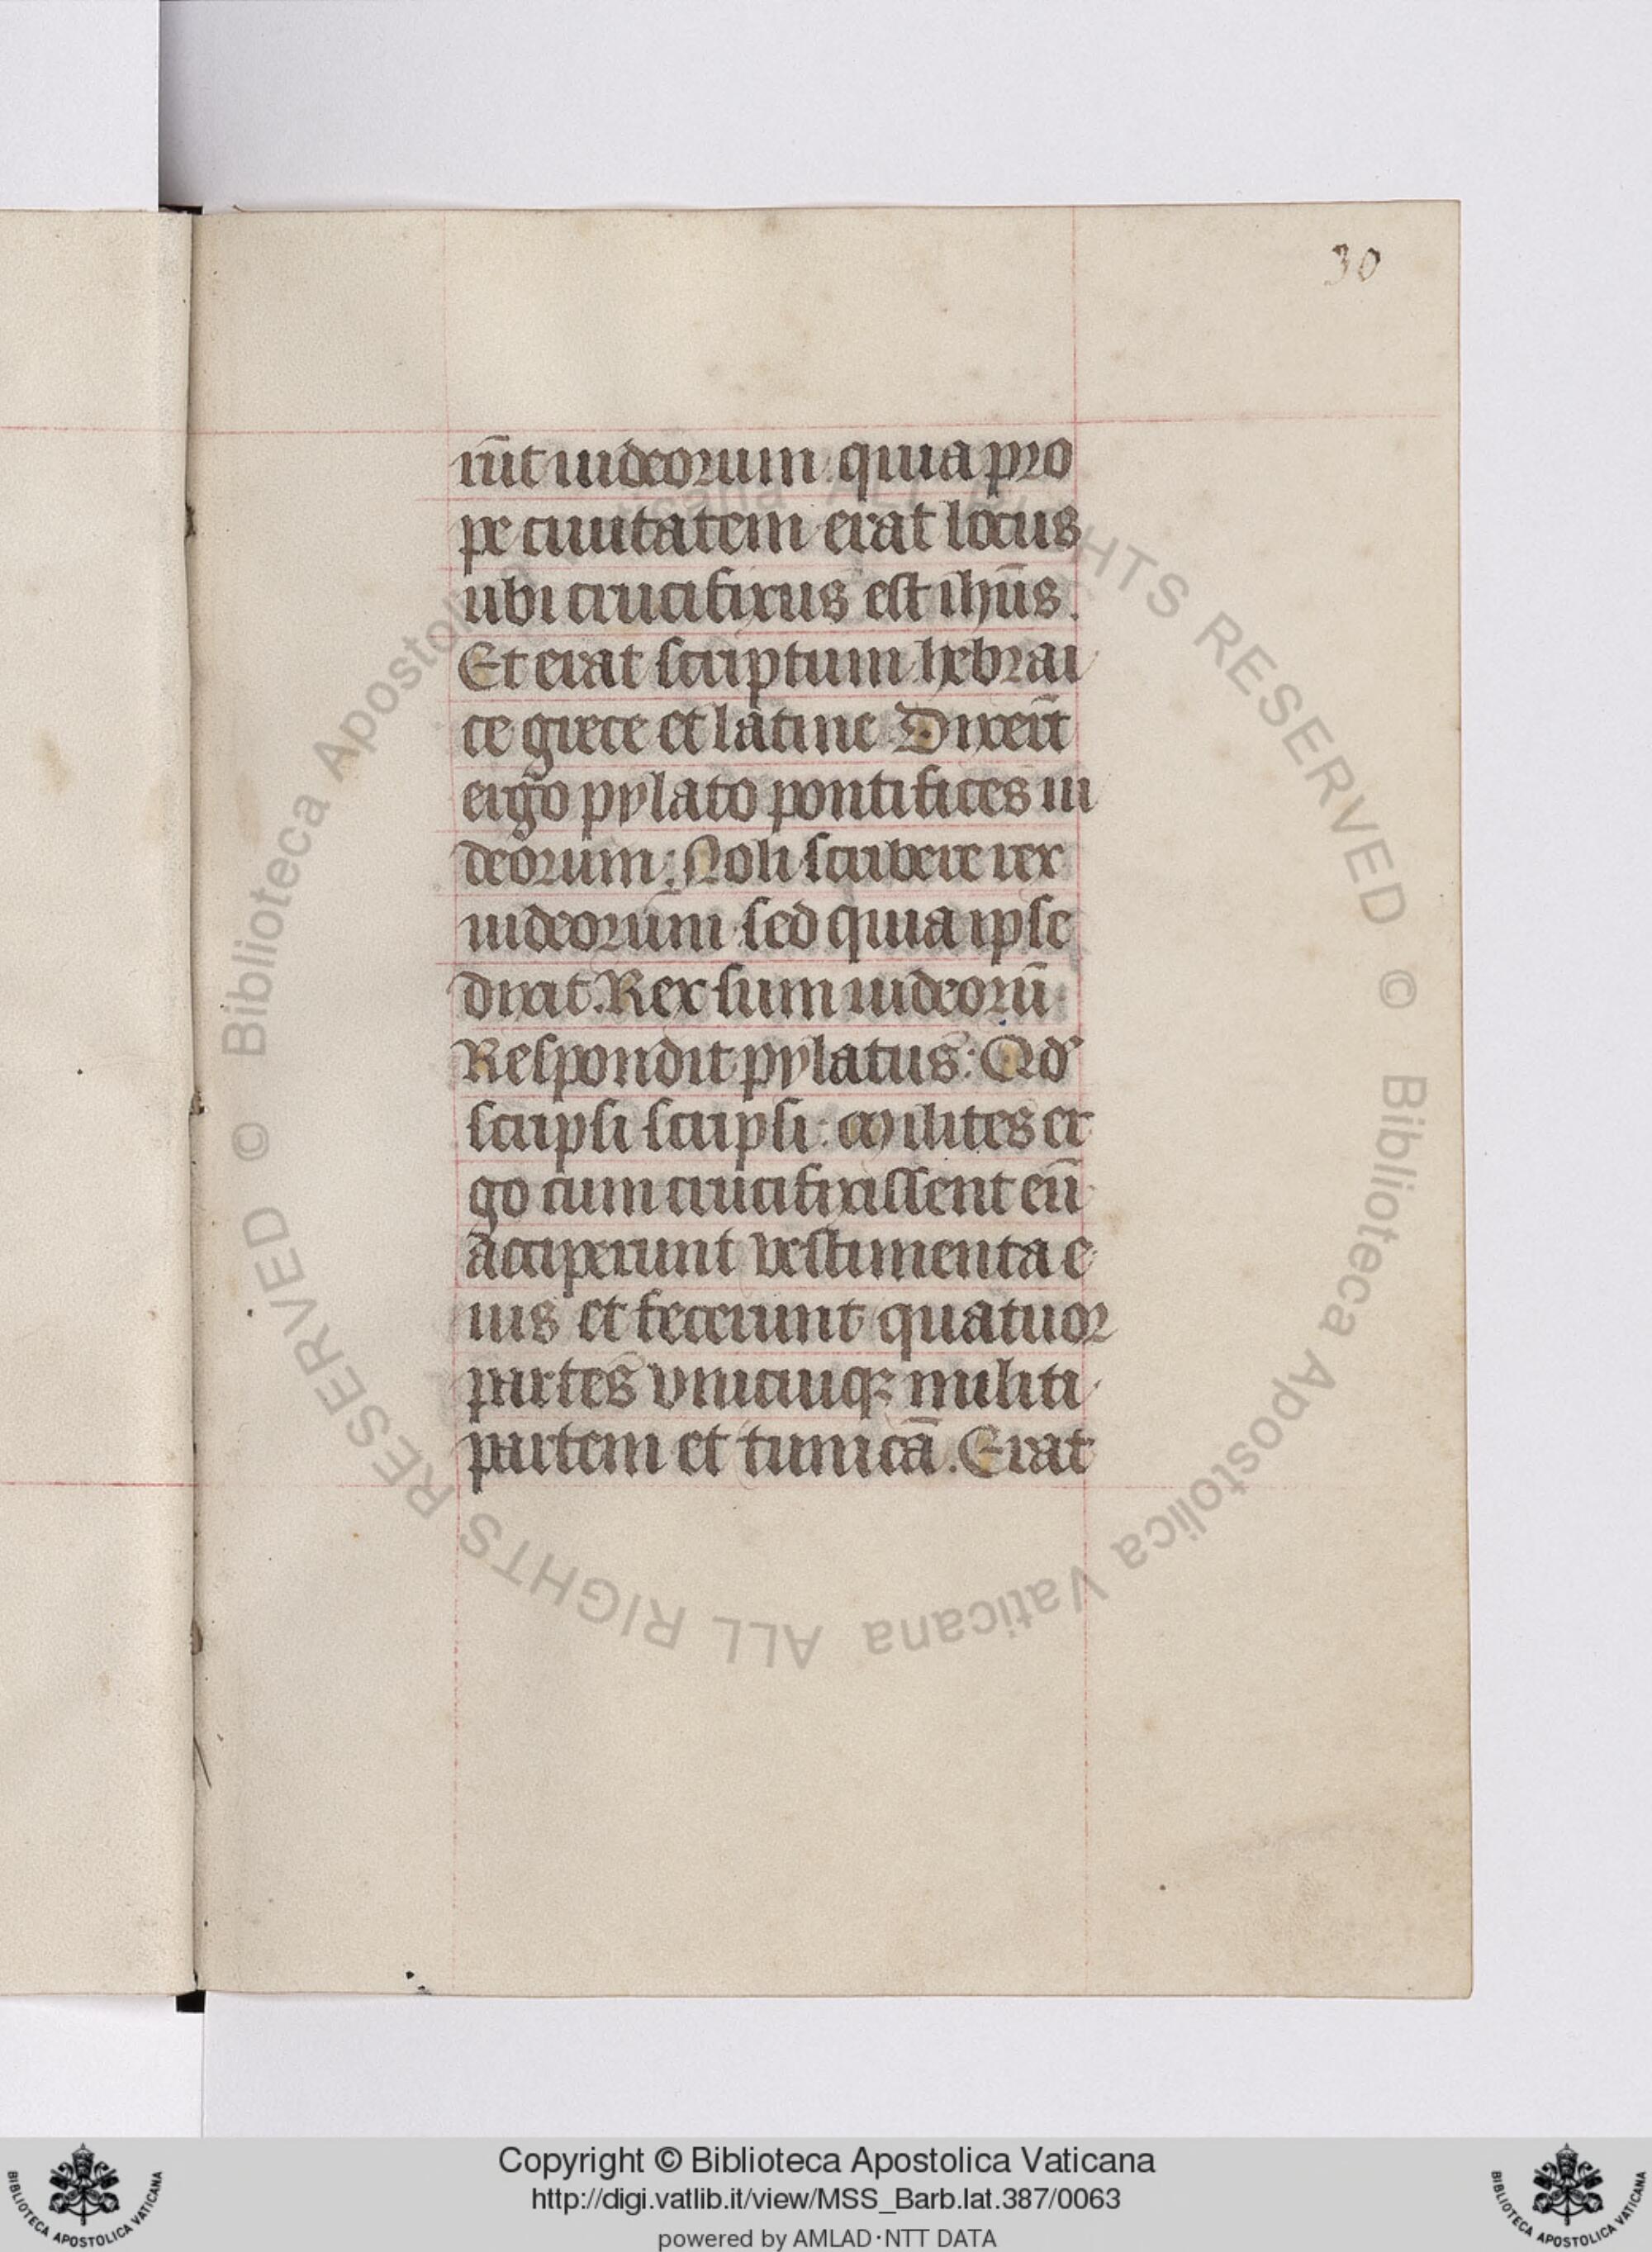 30
rūt iudeorum quia pro
pe ciuitatem erat locus
ubi crucifixus est ihūs.
Et erat scriptum hebrai
ce grece et latine Dixerūt
ergo pylato pontifices iu
deorum: Noli scribere rex
iudeorum sed quia ipse
dixit. Rex sum iudeorū
Respondit pylatus: Qd̕
scripsi scripsi: Milites er
go cum crucifixissent eū
acciperunt vestimenta e
ius et fecerunt quatuor
partes vnicuiqꝫ militi
partem et tunicā. Erat
© Biblioteca Apostolica Vaticana ALL RIGHTS RESERVED © Biblioteca Apostolica Vaticana ALL RIGHTS RESERVED
Copyright © Biblioteca Apostolica Vaticana
http://digi.vatlib.it/view/MSS_Barb.lat.387/0063
powered by AMLAD·NTT DATA
BIBLIOTECA APOSTOLICA VATICANA
BIBLIOTECA APOSTOLICA VATICANA